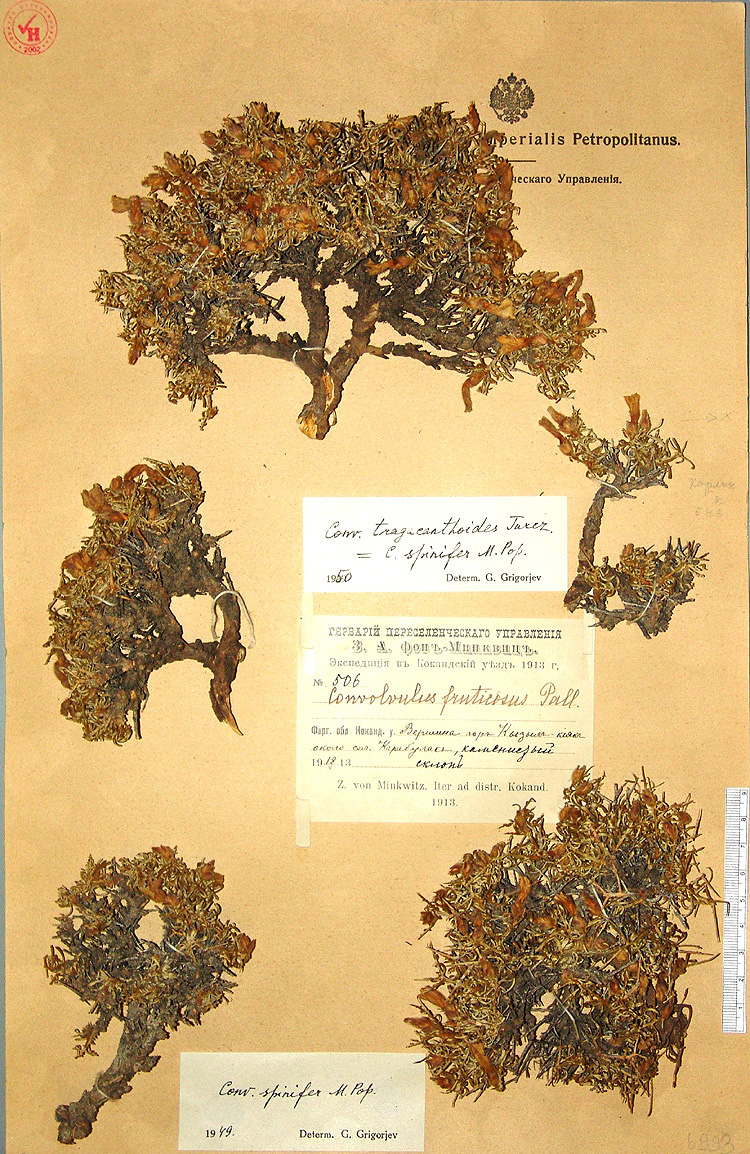 perialis Petropolitanus.
ческаго Управленія.
Conv. tragacanthoides Turcz.
= C. spinifer M. Pop.
1950 Determ. G. Grigorjev
ГЕРБАРІЙ ПЕРЕСЕЛЕНЧЕСКАГО УПРАВЛЕНІЯ
З. А. фонъ-Минквицъ.
Экспедиція въ Кокандскій уѣздъ 1913 г.
№ 506
Convolvulus fruticosus Pall.
Ферг. обл. Коканд. у. Вершина горъ Кызылъ-кіяк
около сел. Карабулакъ, каменистый
1913 склонъ
Z. von Minkwitz. Iter ad distr. Kokand.
1913.
Conv. spinifer M. Pop.
1949. Determ. G. Grigorjev
6993